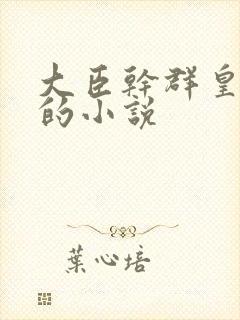 大臣幹群皇
的小說
葉心培